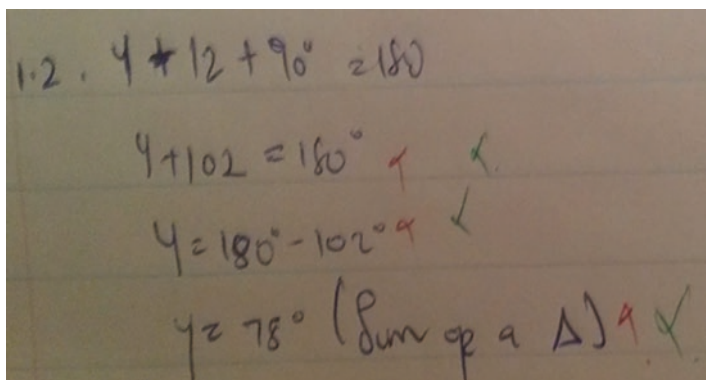 1.2. y + 12 + 90° = 180
y + 102 = 180°
y = 180° - 102°
y = 78° (Sum of a Δ)